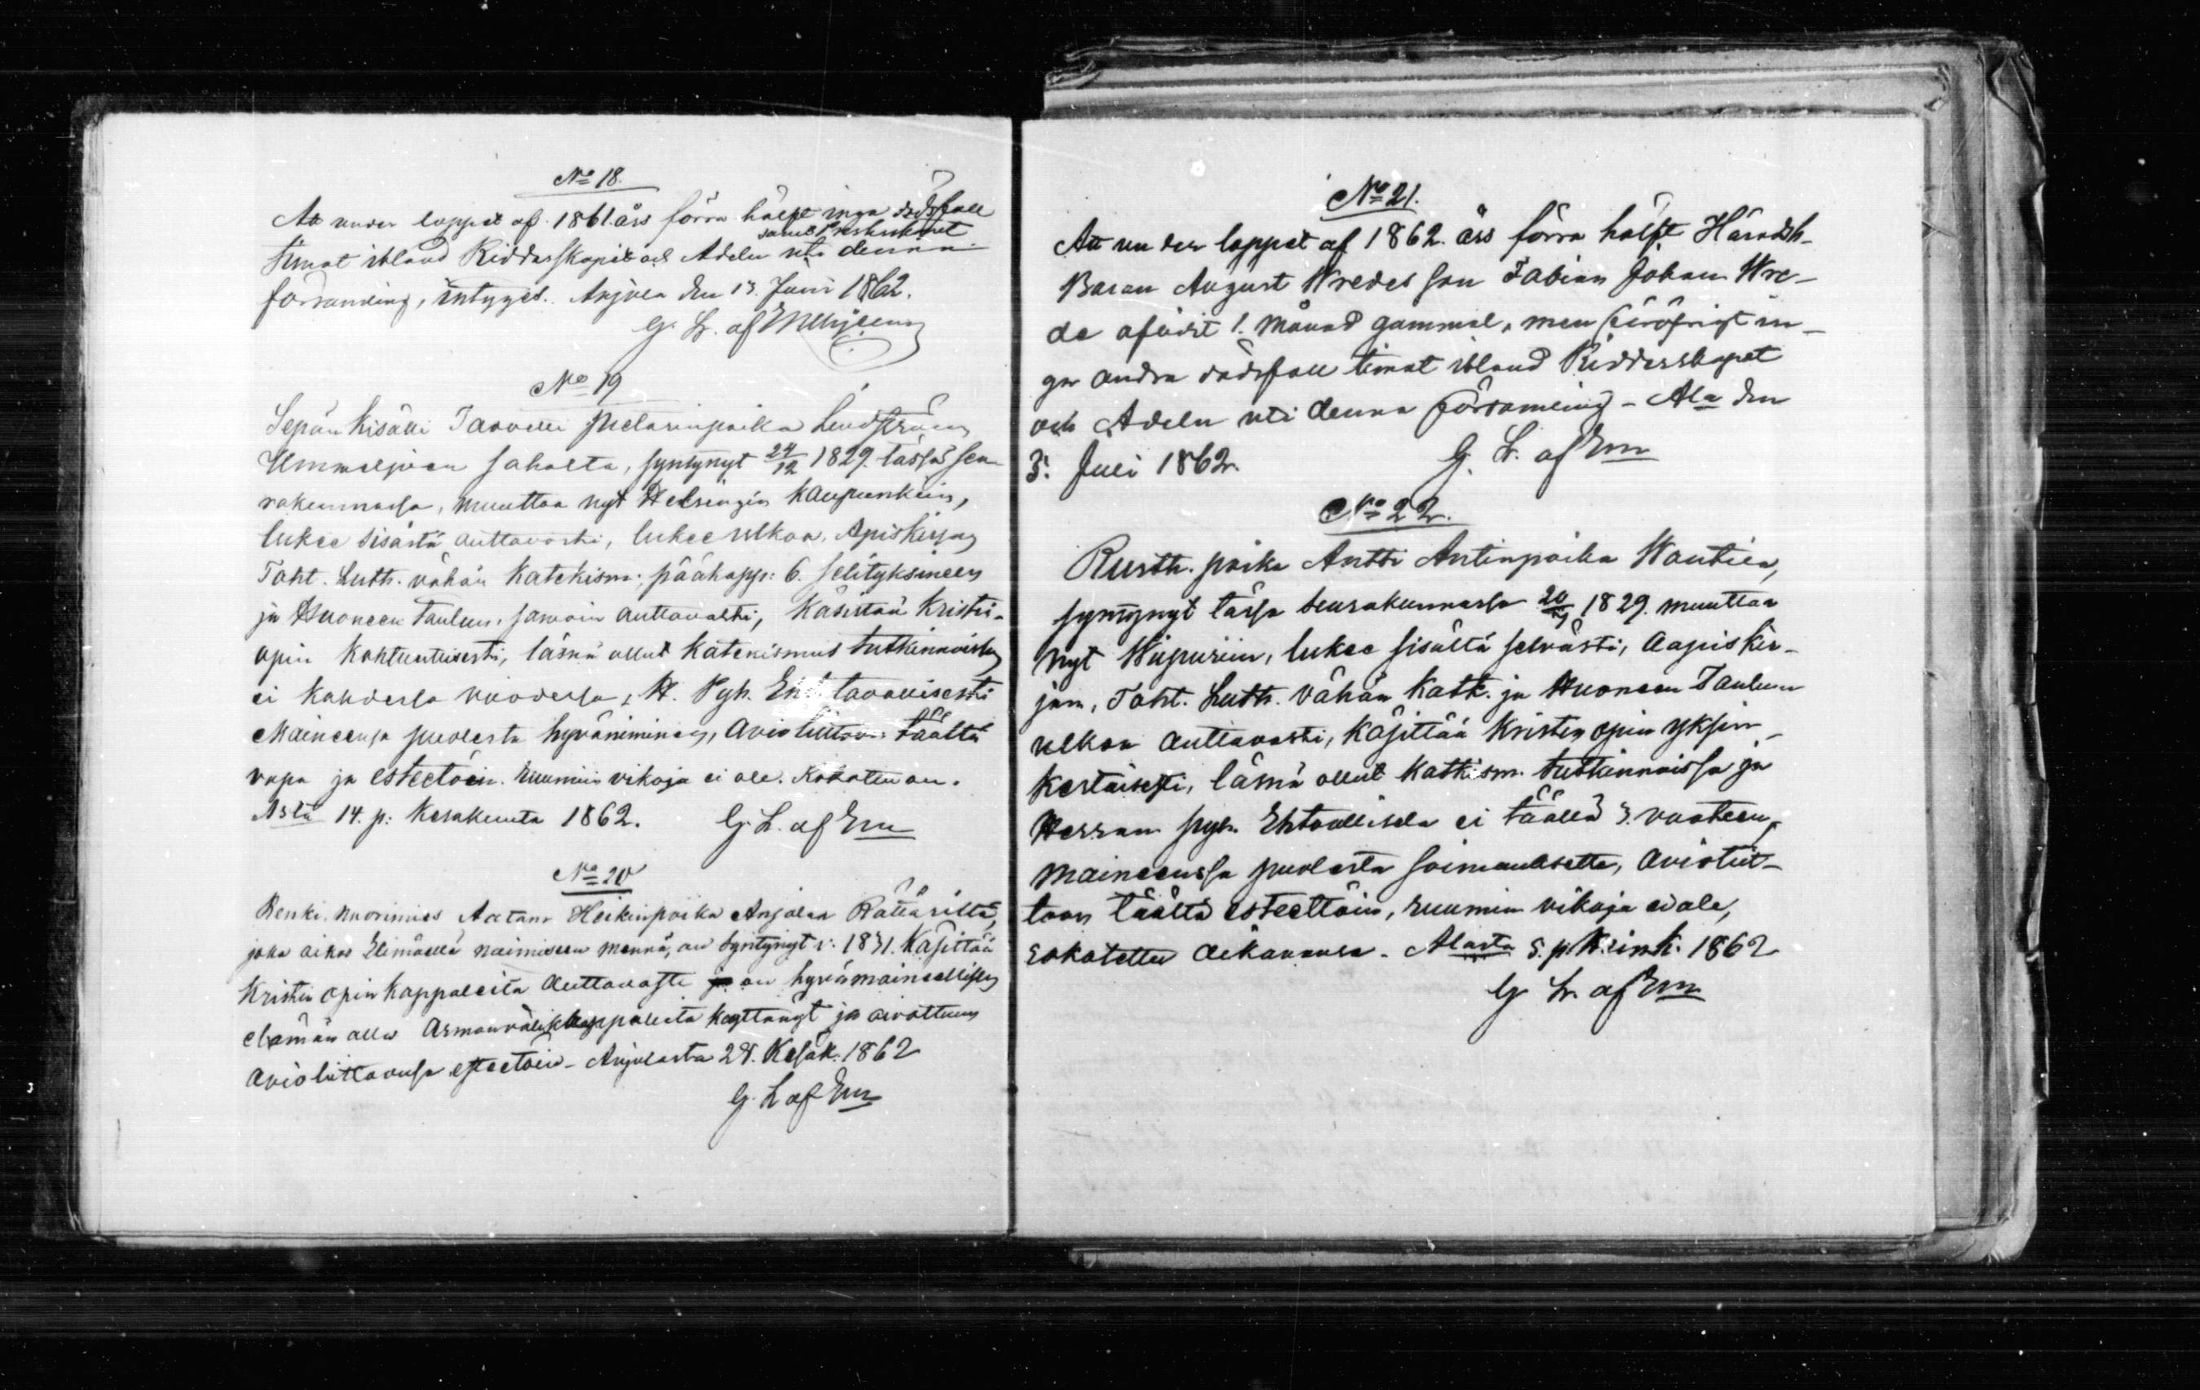 No 18.
Att under loppet af 1861 års förra hälft inga dödsfall
samt Presteståndet
timat ibland Ridderskapet och Adeln uti denna
församling, intyges. Anjala den 13 Juni 1862.
G. L. af
No 19
Sepän kisälli Taavetti pietarinpoika Lindström
Ummeljoen sahalta, syntynyt 24/12 1829. tässä seu-
rakunnassa, muuttaa nyt Helsingin kaupunkiin,
lukee sisästä auttavasti, lukee ulkoa, Apiskirjan
Toht. Luth. vähän Katekism: pääkapp: 6. selityksineen
ja Huoneen taulun, samoin auttavasti, käsittää Kristi-
opin kohtuutisesti, läsnä ollut katekismus tutkinnoissa
ei kahdessa vuodessa, H. Pyh. Eht.
Maineensa puolesta hyväniminen, avioliittoon täältä
vapa ja esteetöin. Ruumiin vikoja ei ole. Rokotettu on.
Asla 14. p: Kesäkuuta 1862. G. L. af Em
No 20
Renki nuorimies Aatami Heikinpoika Anjalan Rättäriltä,
joka aikoo Elimäellä naimiseen mennä, on syntynyt v: 1831. Käsittää
Kristin opin kappaleita auttavasti ja on hyvänmaineellisen
elämän alla Armonvälikkappaleita käyttänyt ja
avioliittoonsa esteetöin - Anjalasta 28. Kesäk. 1862
G. L. af Em
No 21.
Att under loppet af 1862. års förra hälft Häradsh-
Baron August Wredes son Fabian Johan Wre-
de aflidit 1. månad gammal, men för öfrigt in-
ga andra dödsfall timat ibland Ridderskapet
och Adeln uti denna församling - Ala den
3. Juli 1862. G. L. af Em
No 22.
Rusth. poika Antti Antinpoika Wantila,
syntynyt tässä seurakunnassa 1829. muuttaa
nyt Wiipuriin, lukee sisältä selvästi, Aapiskir-
jan, Toht. Luth. vähän Katk. ja Huoneen Taulun
ulkoa auttavasti, käsittää Kristin opin yksin-
kertaisesti, läsnä ollut Katkism. tutkinnoissa ja
Herran pyh. Ehtoollisella ei täällä 3. vuoteen,
maineensa puolesta soimauksetta, avioliit-
toon täältä esteettöin, ruumiin vikoja ei ole,
rokotettu aikananse. Alasta 5. p. Heink. 1862
G. L. af Em